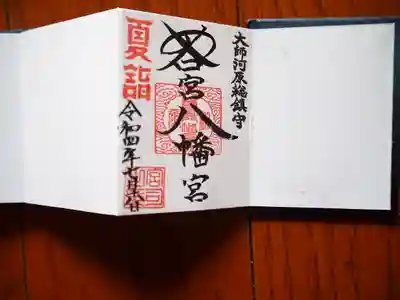 大師河原総鎮守
若宮八幡宮
夏詣
令和四年七月八日